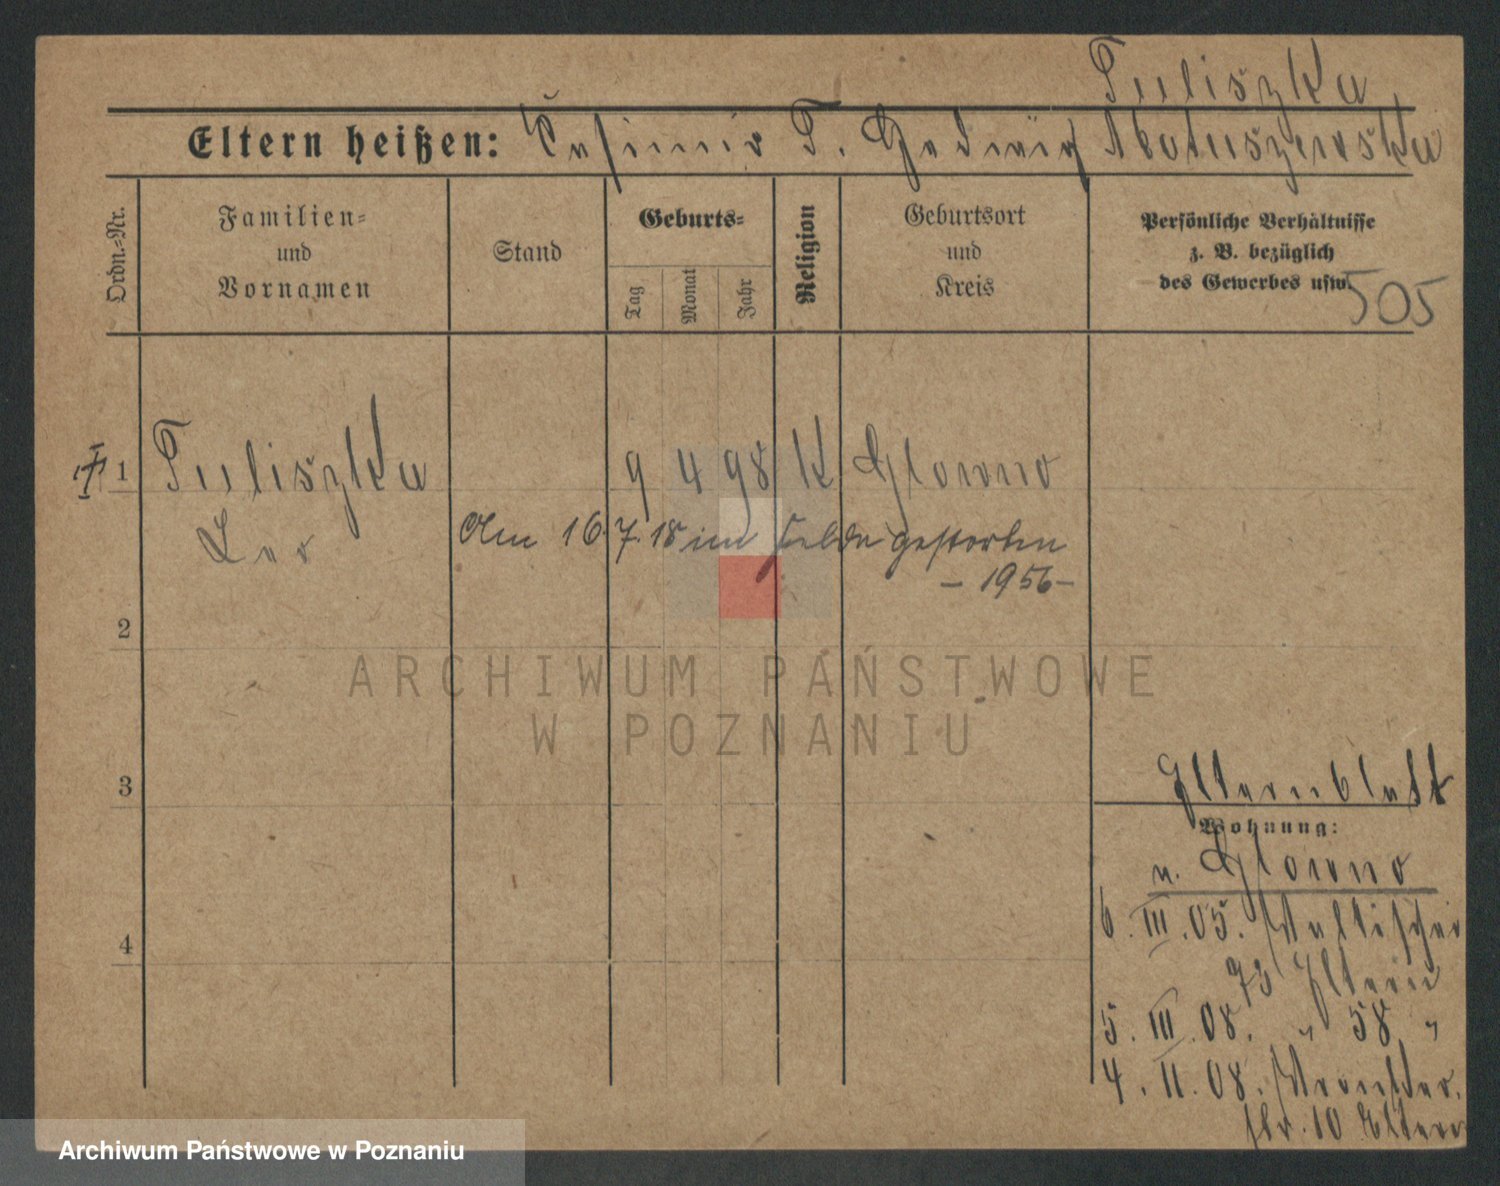 Puliszka
Eltern heißen: Casimir P. Hedwig
Ordn.-Nr.
Familien-
und
Vornamen
Stand
Geburts-
Tag
Monat
Jahr
Religion
Geburtsort
und
Kreis
Persönliche Verhältnisse
z. B. bezüglich
des Gewerbes usw.
505
1 Puliszka 9 4 98 K Glowno
Leo
Am 16.7.18 im Felde gestorben
- 1956 -
2
3
4
Elternblatt
Wohnung:
v. Glowno
6. III. 05. Wallischei
73 Eltern
5. III. 08. " 58 "
4. II. 08.
str. 10 Eltern
ARCHIWUM PAŃSTWOWE
W POZNANIU
Archiwum Państwowe w Poznaniu